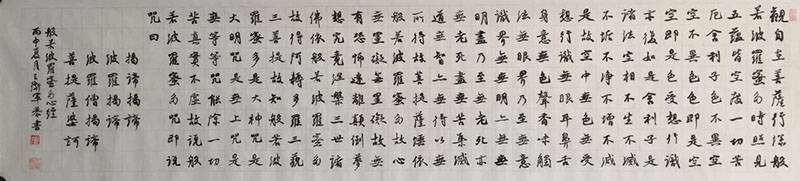 觀自在菩薩行深般
若波羅蜜多時照見
五蘊皆空度一切苦
厄舍利子色不異空
空不異色色即是空
空即是色受想行識
亦復如是舍利子是
諸法空相不生不滅
不垢不淨不增不減
是故空中無色無受
想行識無眼耳鼻舌
身意無色聲香味觸
法無眼界乃至無意
識界無無明亦無無
明盡乃至無老死亦
無老死盡無苦集滅
道無智亦無得以無
所得故菩提薩埵依
般若波羅蜜多故心
無罣礙無罣礙故無
有恐怖遠離顛倒夢
想究竟涅槃三世諸
佛依般若波羅蜜多
故得阿耨多羅三藐
三菩提故知般若波
羅蜜多是大神咒是
大明咒是無上咒是
無等等咒能除一切
苦真實不虛故說般
若波羅蜜多咒即說
咒曰
揭諦揭諦
波羅揭諦
波羅僧揭諦
菩提薩婆訶
般若波羅蜜多心經
丙申夏月王衛軍恭書